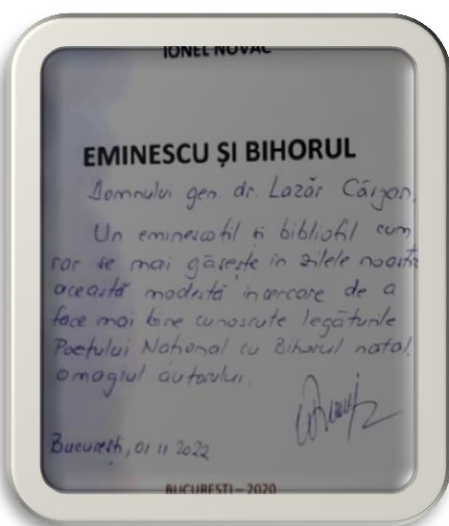 IONEL NOVAC
EMINESCU ȘI BIHORUL
Domnului gen. dr. Lazăr Cârjan,
Un eminescofil și bibliofil cum
rar se mai găsește în zilele noastre
această modestă încercare de a
face mai bine cunoscute legăturile
Poetului Național cu Bihorul natal.
Omagiul autorului.
București, 01 11 2022
BUCUREȘTI – 2020